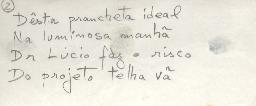 2
Dêsta prancheta ideal
Na luminosa manhã
Dr Lúcio faz o risco
Do projeto telha vã